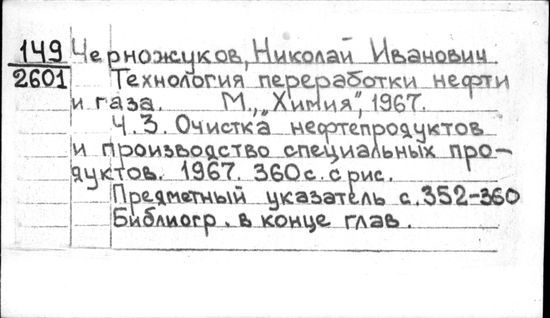 149 Черножуков, Николай Иванович
2601 Технология переработки нефти
и газа. М., „Химия", 1967.
Ч. 3. Очистка нефтепродуктов
и производство специальных про-
дуктов. 1967. 360 с. с рис.
Предметный указатель с. 352-360
Библиогр. в конце глав.